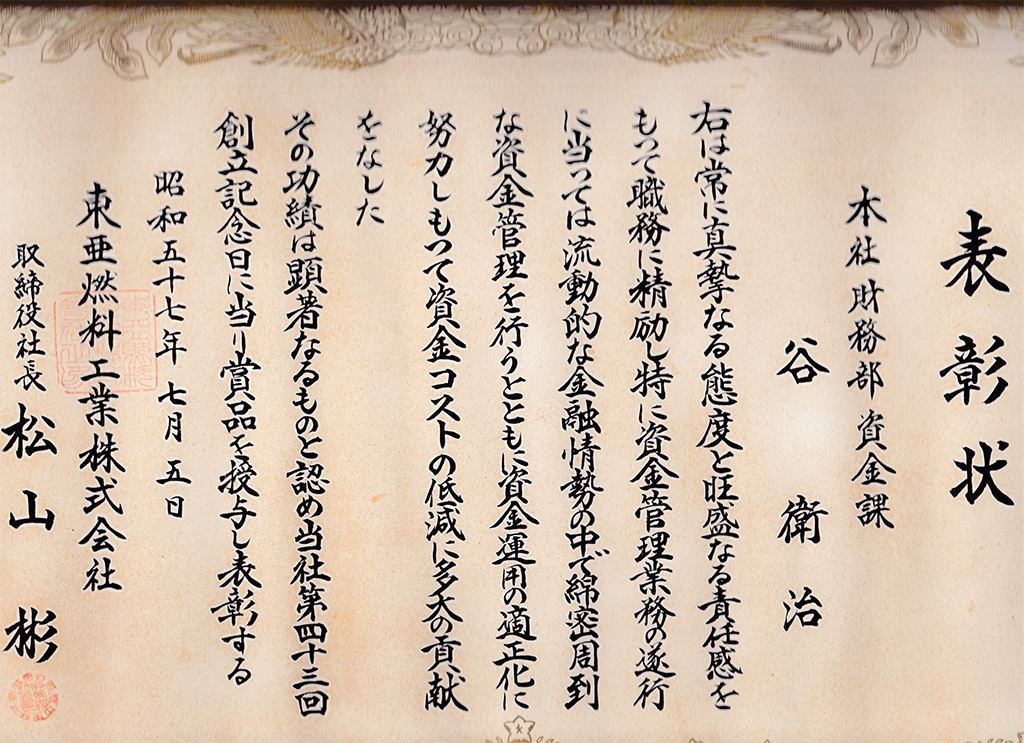 表彰状
本社財務部資金課
谷衛治
右は常に真摯なる態度と旺盛なる責任感を
もって職務に精励し特に資金管理業務の遂行
に当っては流動的な金融情勢の中で綿密周到
な資金管理を行うとともに資金運用の適正化に
努力しもって資金コストの低減に多大の貢献
をなした
その功績は顕著なるものと認め当社第四十三回
創立記念日に当り賞品を授与し表彰する
昭和五十七年七月五日
東亜燃料工業株式会社
取締役社長 松山彬